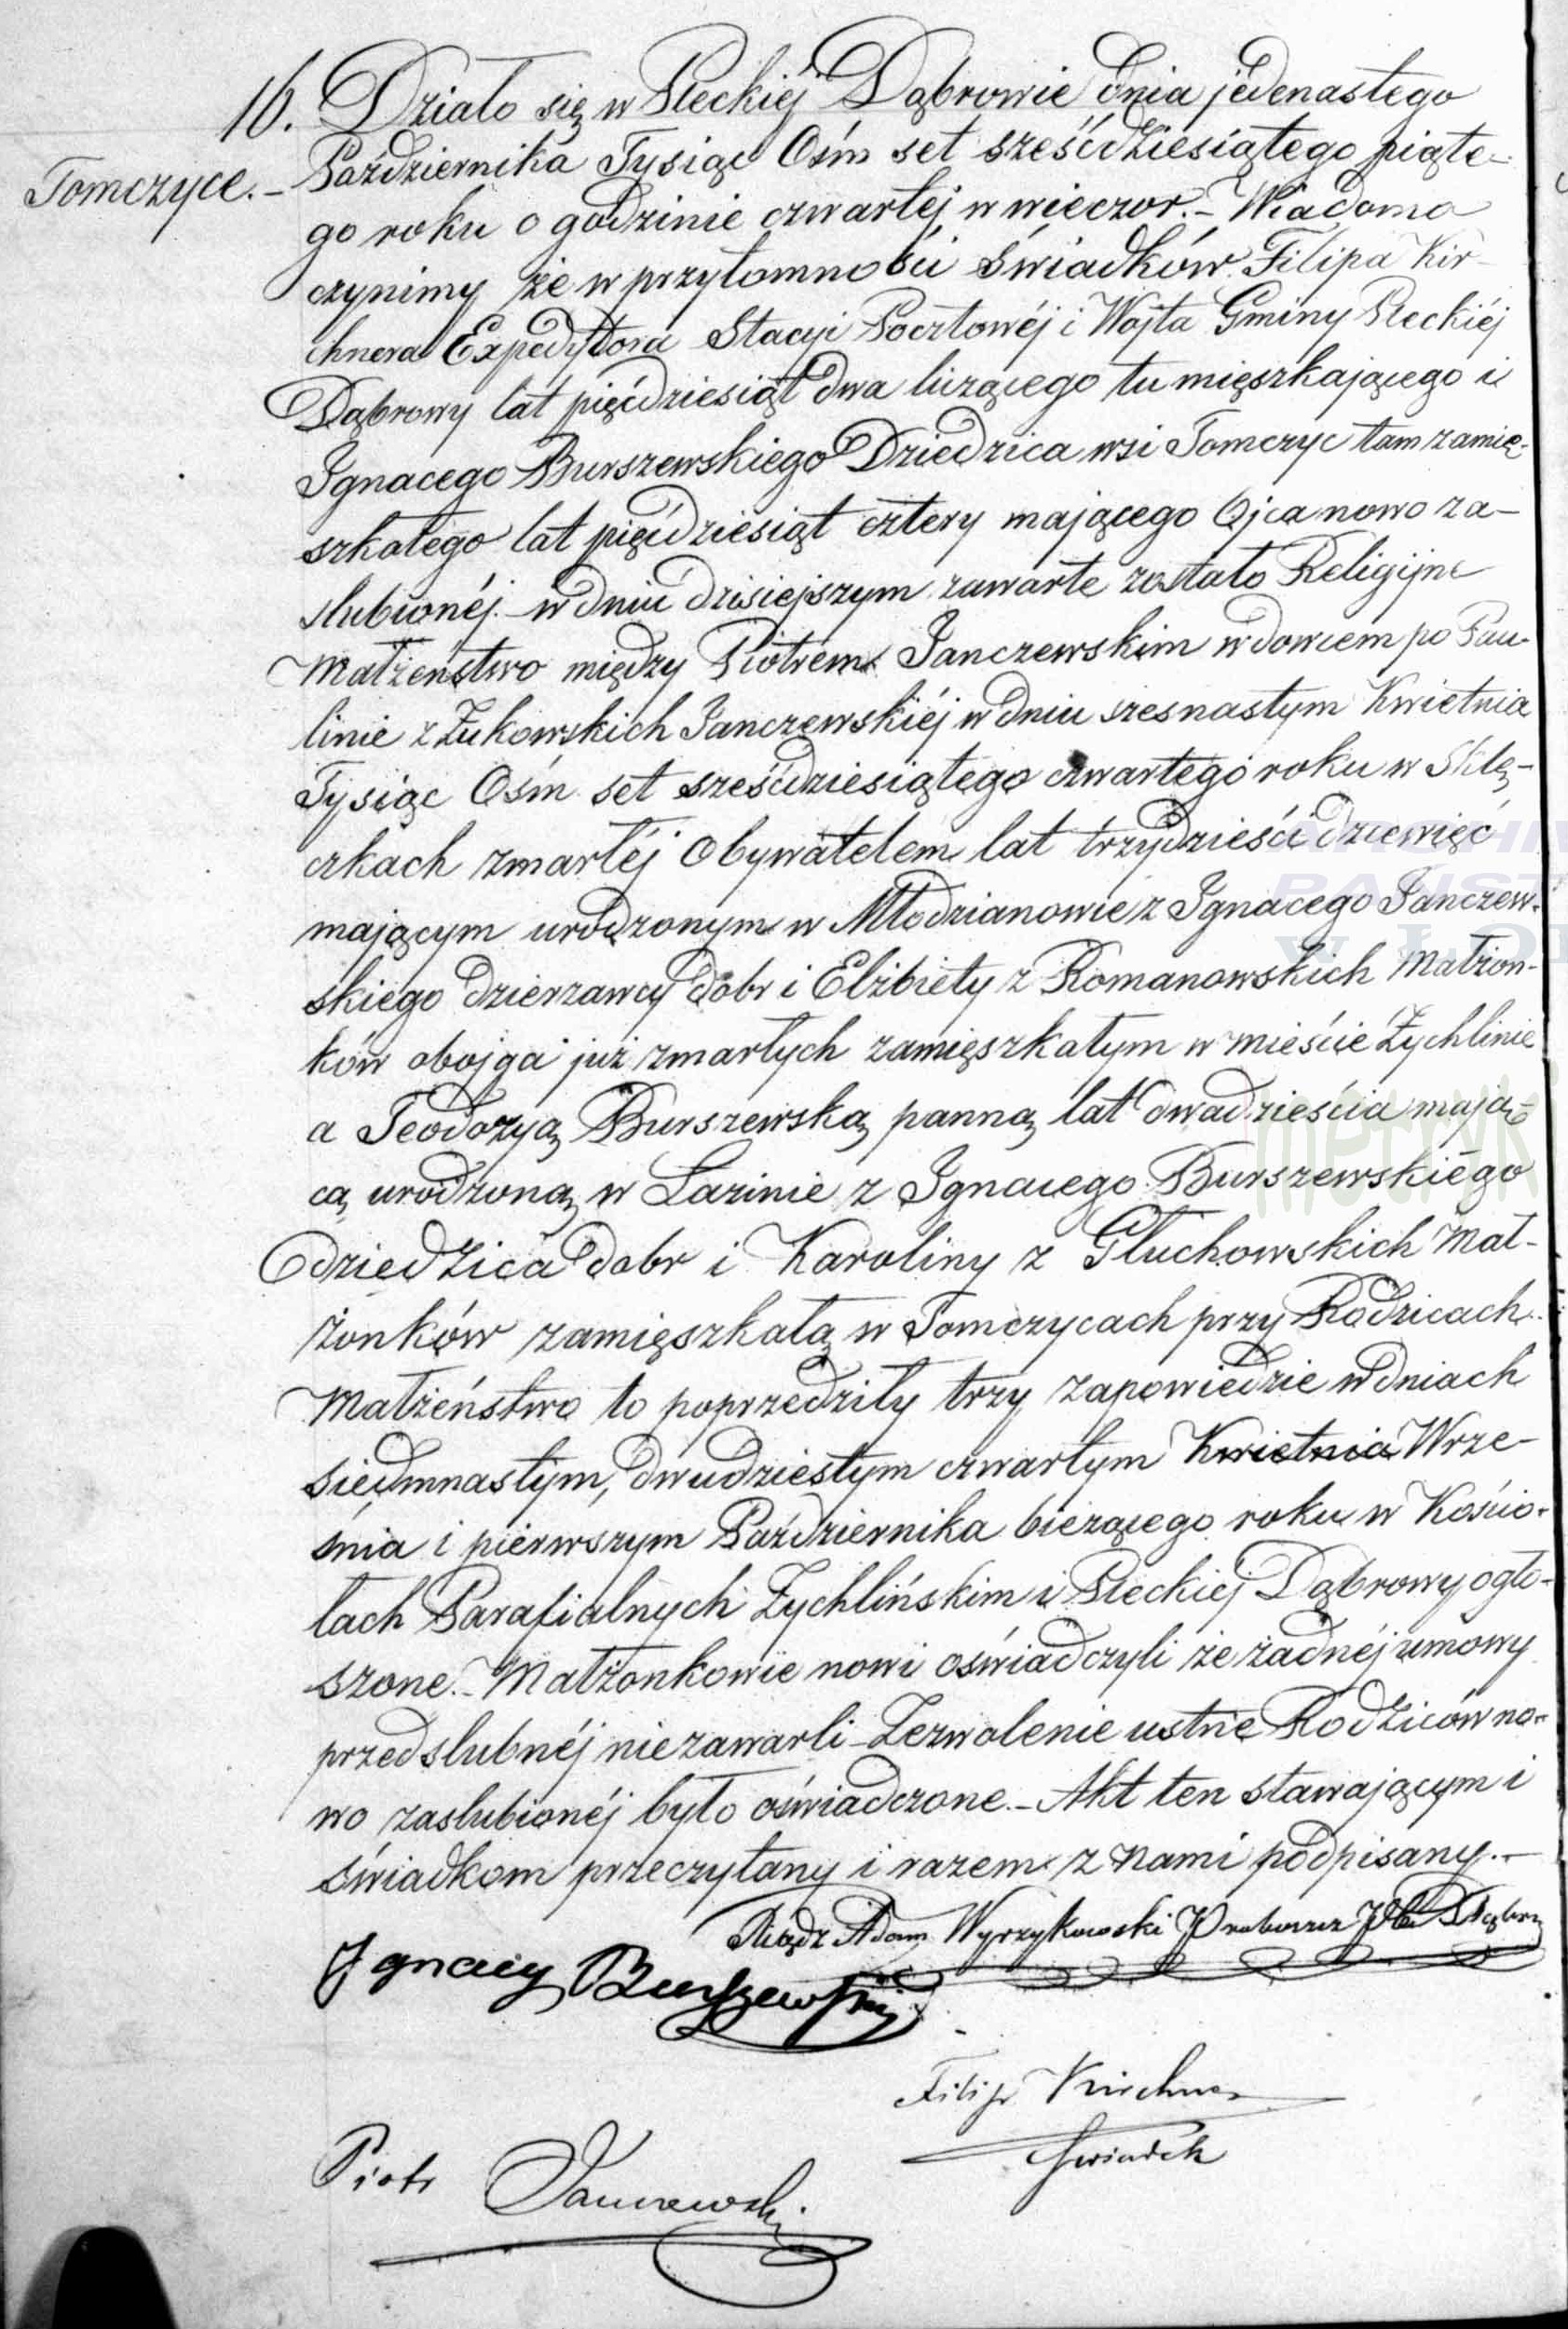 16. Działo się w Pleckiéj Dąbrowie dnia jedenastego
Tomczyce. – Października Tysiąc Ośm set sześćdziesiątego piąte-
go roku o godzinie czwartéj w wieczor. – Wiadomo
czynimy że w przytomności świadków Filipa Kir-
chnera Expedytora Stacyi Pocztowéj i Wójta Gminy Pleckiéj
Dąbrowy lat pięćdziesiąt dwa liczącego tu mięszkającego i
Ignacego Burszewskiego Dziedzica wsi Tomczyc tam zamię-
szkałego lat pięćdziesiąt cztery mającego Ojca nowo za-
slubionéj – w dniu dzisiejszym zawarte zostało Religijne
Małżenstwo między Piotrem Janczewskim wdowcem po Pau-
linie z Żukowskich Janczewskiéj w dniu szesnastym Kwietnia
Tysiąc Ośm set sześćdziesiątego czwartego roku w Sklę-
czkach zmarłéj Obywatelem lat trzydzieści dziewięć
mającym urodzonym w Młodzianowie z Ignacego Janczew-
skiego dzierzawcy dóbr i Elżbiety z Romanowskich Małżon-
ków obojga już zmarłych zamięszkałym w mieście Żychlinie
a Teodozyą Burszewską panną lat dwadzieścia mają-
cą urodzoną w Lazinie z Ignacego Burszewskiego
dziedzica dobr i Karoliny z Głuchowskich Mał-
żonków zamięszkałą w Tomczycach przy Rodzicach.
Małżeństwo to poprzedziły trzy zapowiedzie w dniach
siedmnastym, dwudziestym czwartym Kwietnia Wrze-
śnia i pierwszym Października bieżącego roku w Kościo-
łach Parafialnych Żychlińskim i Pleckiéj Dąbrowy ogło-
szone. – Małżonkowie nowi oświadczyli że żadnéj umowy
przedslubnéj niezawarli – Zezwolenie ustne Rodziców no-
wo zaslubionéj było oświadczone. – Akt ten stawającym i
świadkom przeczytany i razem z nami podpisany. –
Xiądz Adam Wyrzykowski Proboszcz
Ignacy Burszewski
Filip Kirchner
świadek
Piotr Janczewski
metryk